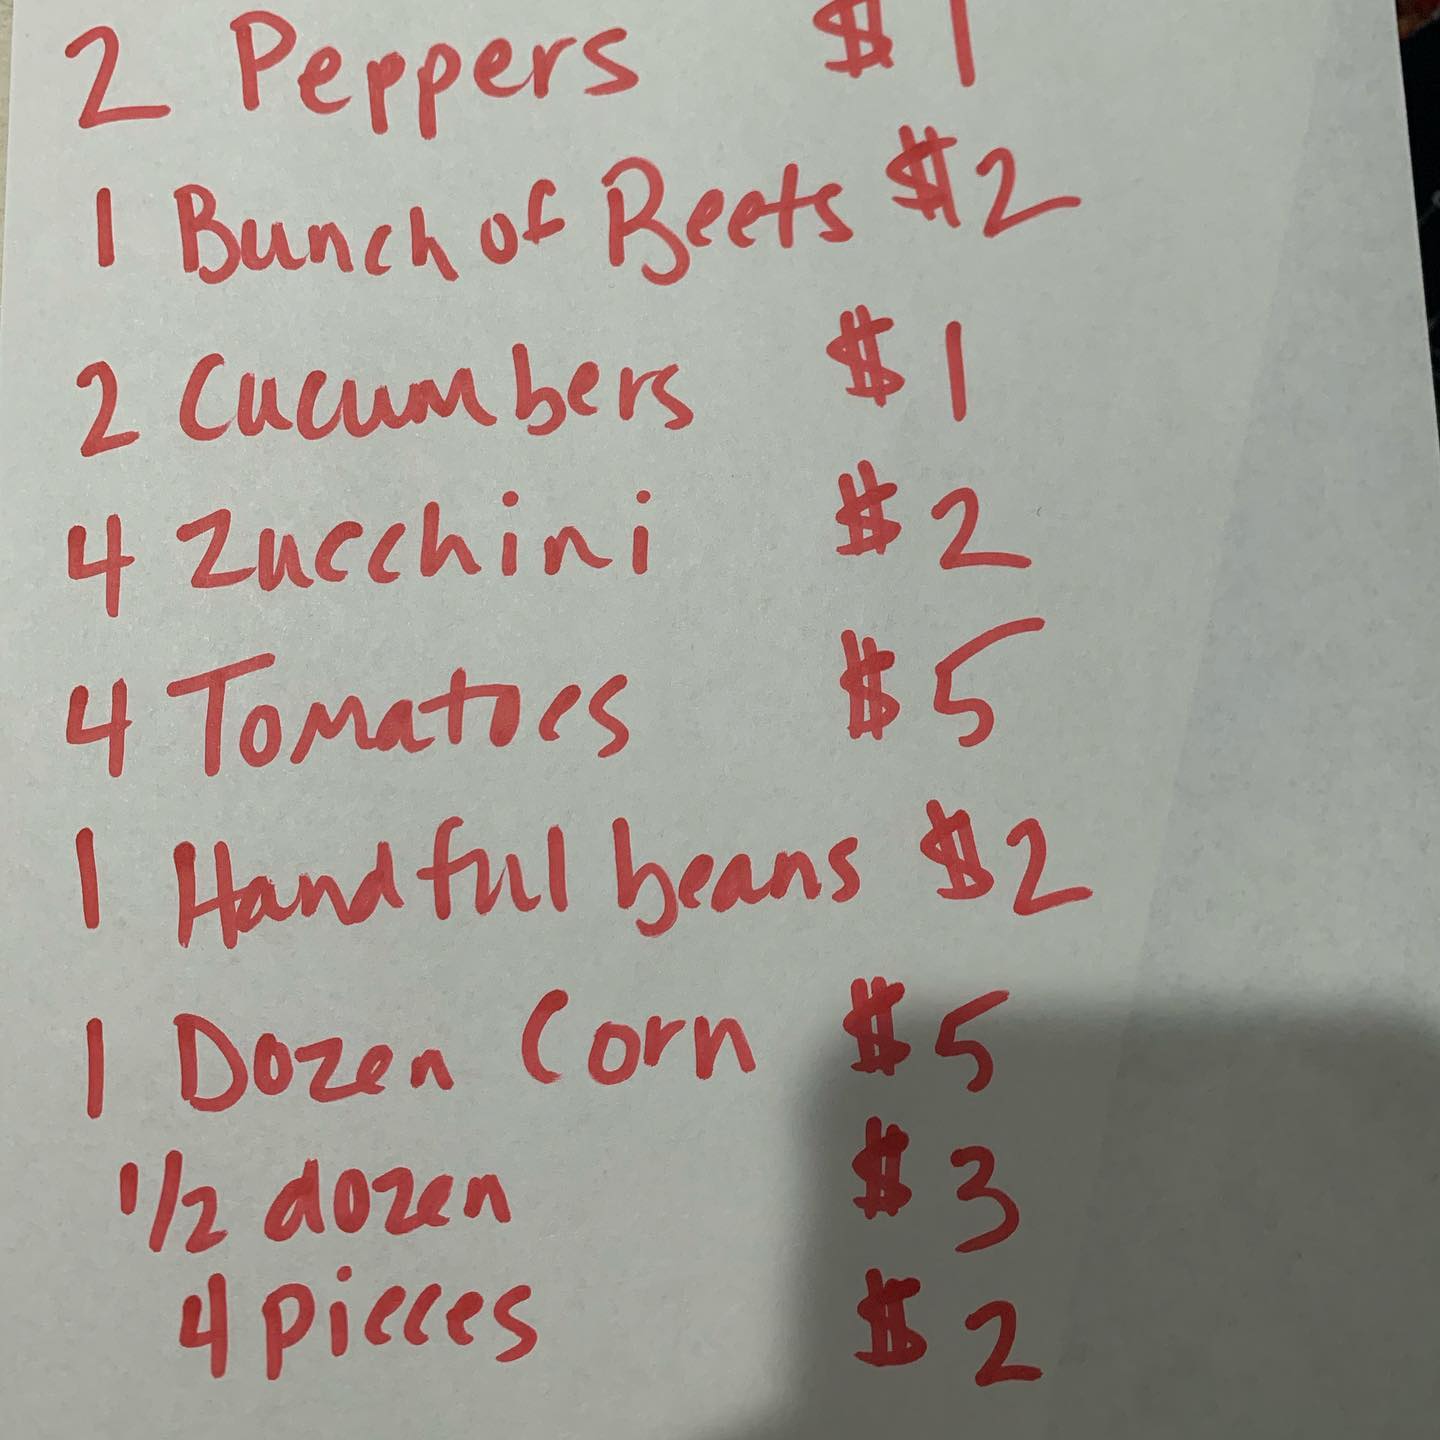 2 Peppers $1
1 Bunch of Beets $2
2 Cucumbers $1
4 Zucchini $2
4 Tomatoes $5
1 Handful beans $2
1 Dozen Corn $5
1/2 dozen $3
4 pieces $2